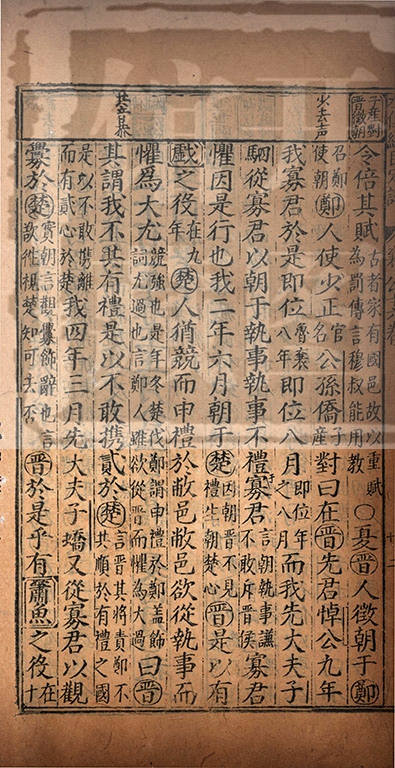 子產對晉徵朝
令倍其賦古者家有國邑故以重賦為罰傳言穆叔能用教○夏晉人徵朝于鄭
少去声
召鄭使朝鄭人使少正官名公孫僑子產對曰在晉先君悼公九年
我寡君於是即位魯襄八年即位八月即位年之八月而我先大夫子
駟從寡君以朝于執事執事不禮寡君言朝執事謙不敢斥晉侯寡君
懼因是行也我二年六月朝于楚因朝晉不見禮生朝楚心晉是以有
戲之役在九年楚人猶競而申禮於敝邑敝邑欲從執事而
懼為大尤競強也是年冬楚伐鄭謂申禮於鄭蓋飾詞尤過也言鄭人雖欲從晉而懼為大過曰晉
其謂我不共有禮是以不敢攜貳於楚言晉其將責鄭不共順於有禮之國
是以不敢携離而有貳心於楚我四年三月先大夫子蟜又從寡君以觀
釁於楚實朝言觀釁飾辭也言欲往視楚知可去否晉於是乎有蕭魚之役在十